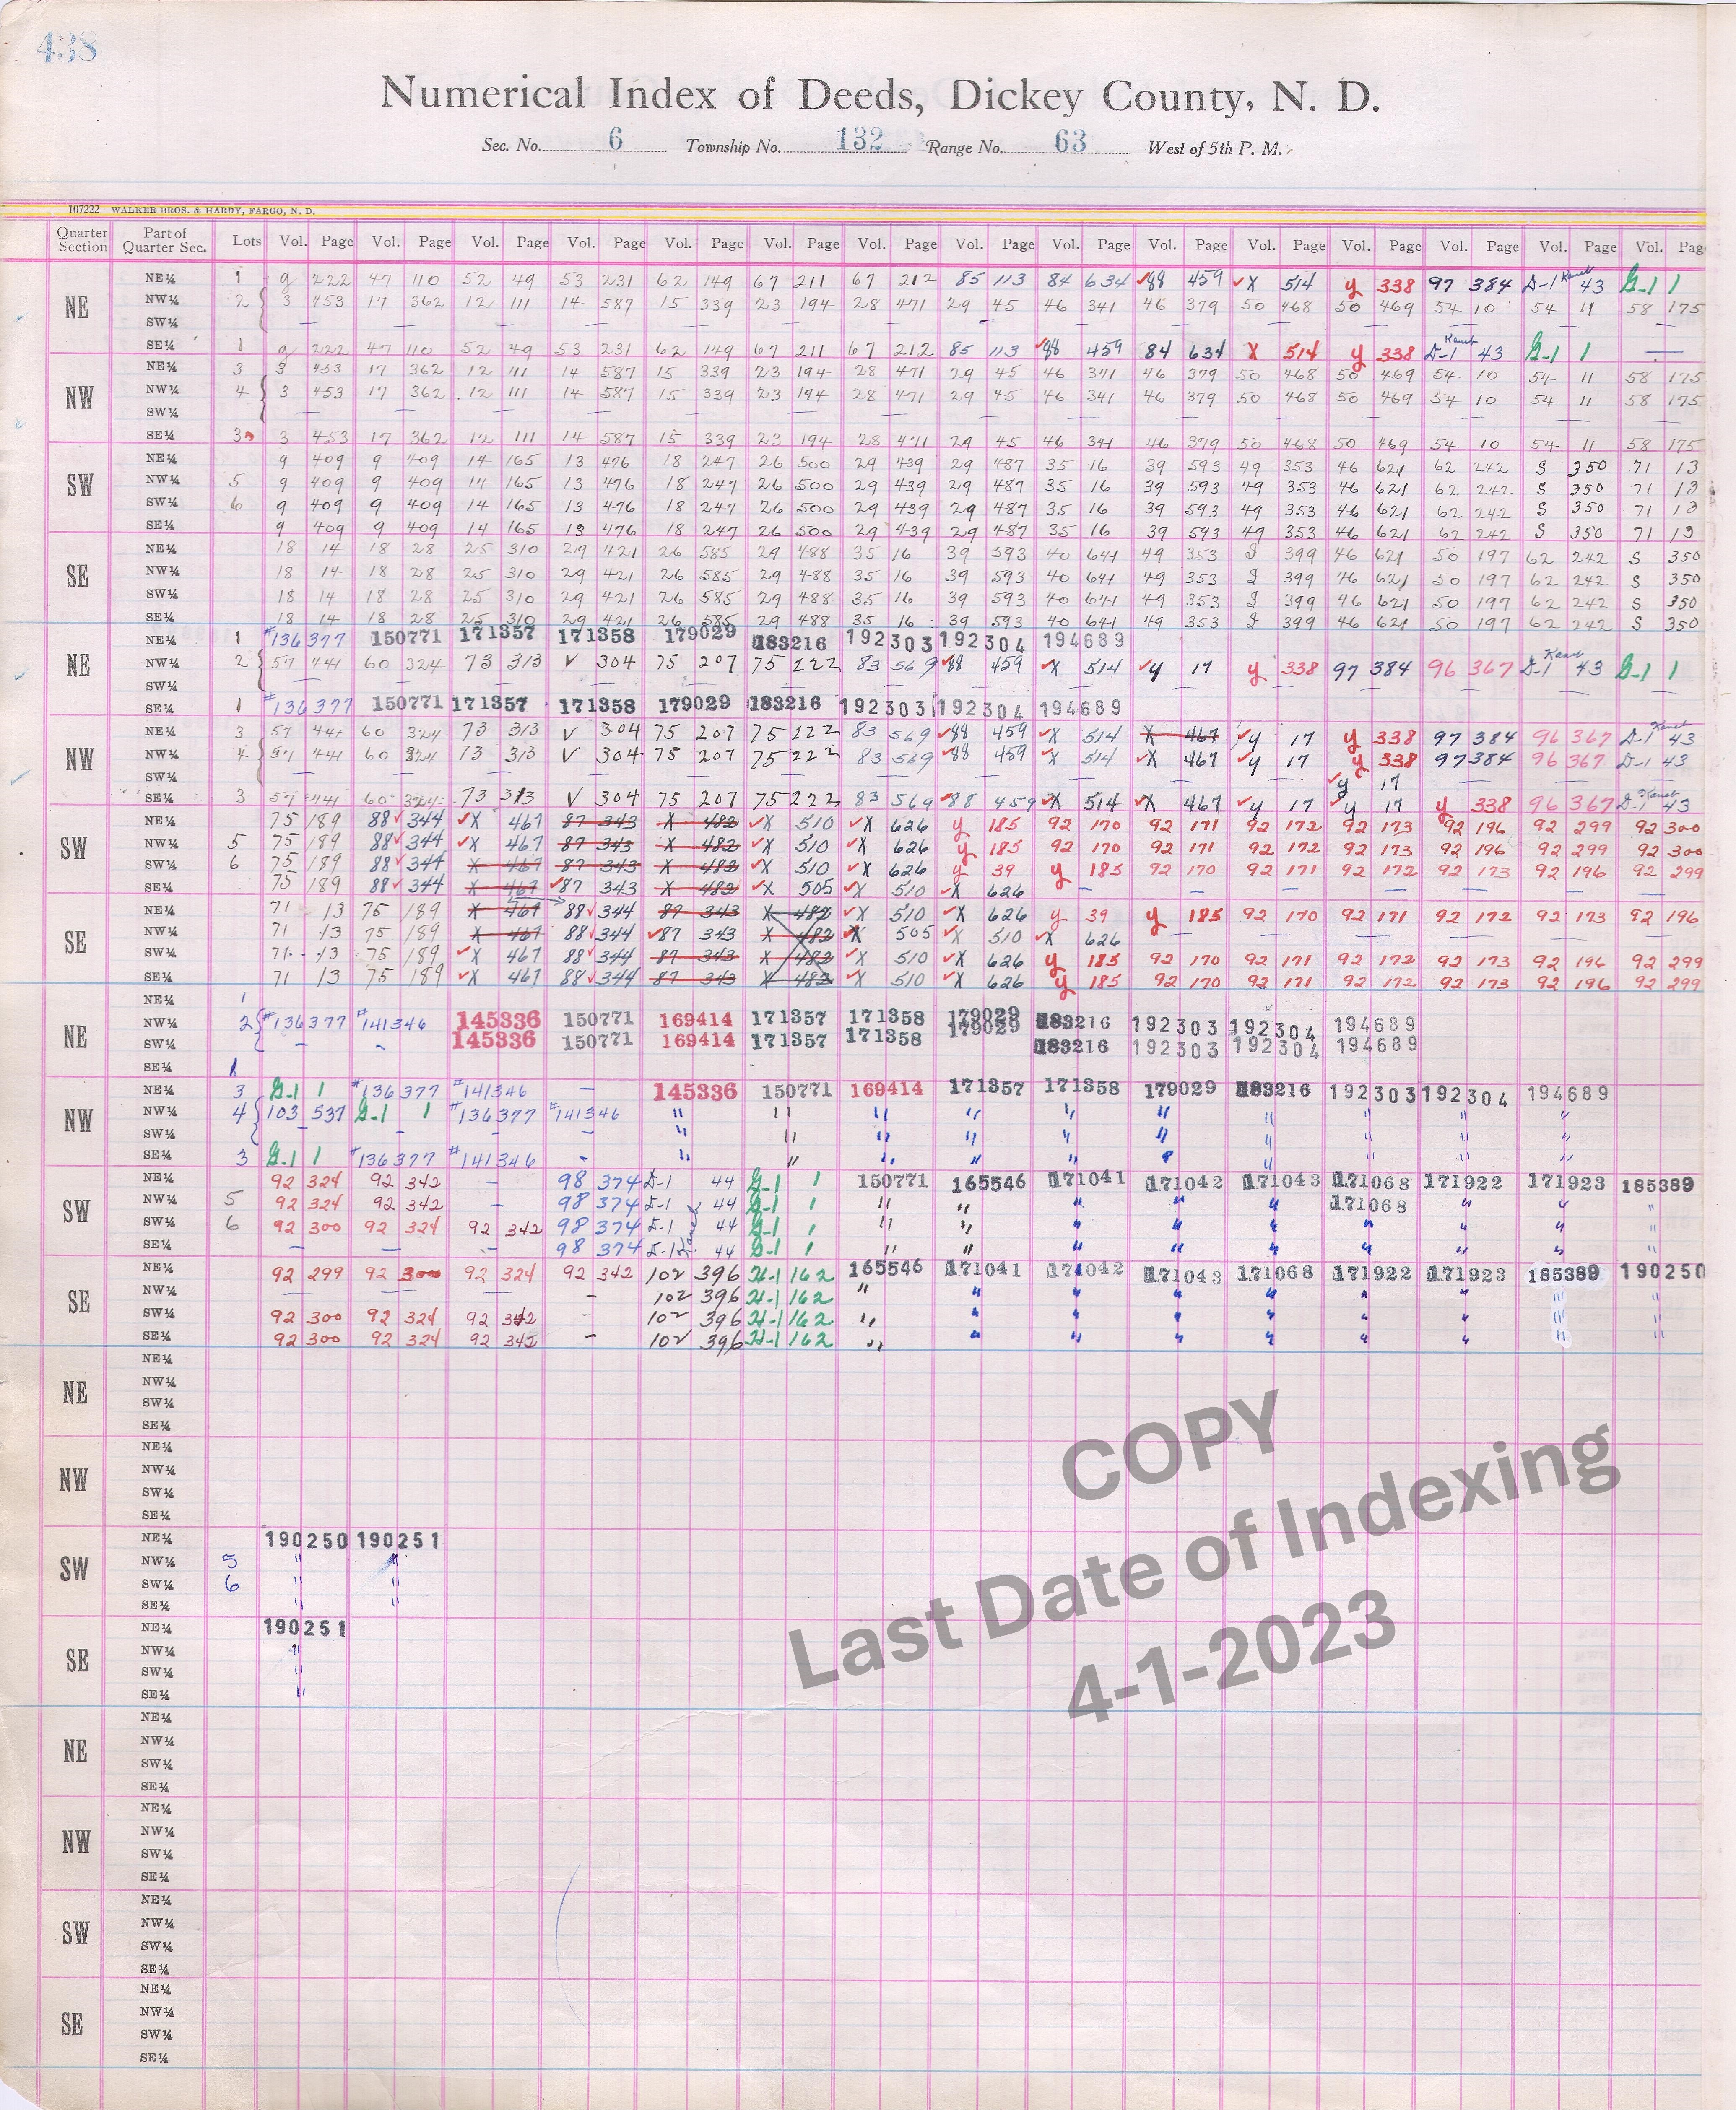 438
Numerical Index of Deeds, Dickey County, N. D.
Sec. No. 6 Township No. 132 Range No. 63 West of 5th P. M.
107222 WALKER BROS. & HARDY, FARGO, N. D.
Quarter Section Part of Quarter Sec. Lots Vol. Page Vol. Page Vol. Page Vol. Page Vol. Page Vol. Page Vol. Page Vol. Page Vol. Page Vol. Page Vol. Page Vol. Page Vol. Page Vol. Page Vol. Pag
NE
NE¼ 1 g 222 47 110 52 49 53 231 62 149 67 211 67 212 85 113 84 634 88 459 X 514 y 338 97 384 D-1 43 G-1 1
NW¼ 2 3 453 17 362 12 111 14 587 15 339 23 194 28 471 29 45 46 341 46 379 50 468 50 469 54 10 54 11 58 175
SW¼
SE¼ 1 g 222 47 110 52 49 53 231 62 149 67 211 67 212 85 113 88 459 84 634 X 514 y 338 D-1 43 G-1 1 —
NW
NE¼ 3 3 453 17 362 12 111 14 587 15 339 23 194 28 471 29 45 46 341 46 379 50 468 50 469 54 10 54 11 58 175
NW¼ 4 3 453 17 362 12 111 14 587 15 339 23 194 28 471 29 45 46 341 46 379 50 468 50 469 54 10 54 11 58 175
SW¼
SE¼ 3 3 453 17 362 12 111 14 587 15 339 23 194 28 471 29 45 46 341 46 379 50 468 50 469 54 10 54 11 58 175
SW
NE¼ 9 409 9 409 14 165 13 476 18 247 26 500 29 439 29 487 35 16 39 593 49 353 46 621 62 242 S 350 71 13
NW¼ 5 9 409 9 409 14 165 13 476 18 247 26 500 29 439 29 487 35 16 39 593 49 353 46 621 62 242 S 350 71 13
SW¼ 6 9 409 9 409 14 165 13 476 18 247 26 500 29 439 29 487 35 16 39 593 49 353 46 621 62 242 S 350 71 13
SE¼ 9 409 9 409 14 165 13 476 18 247 26 500 29 439 29 487 35 16 39 593 49 353 46 621 62 242 S 350 71 13
SE
NE¼ 18 14 18 28 25 310 29 421 26 585 29 488 35 16 39 593 40 641 49 353 399 46 621 50 197 62 242 S 350
NW¼ 18 14 18 28 25 310 29 421 26 585 29 488 35 16 39 593 40 641 49 353 399 46 621 50 197 62 242 S 350
SW¼ 18 14 18 28 25 310 29 421 26 585 29 488 35 16 39 593 40 641 49 353 399 46 621 50 197 62 242 S 350
SE¼ 18 14 18 28 25 310 29 421 26 585 29 488 35 16 39 593 40 641 49 353 399 46 621 50 197 62 242 S 350
NE
NE¼ 1 #136377 150771 171357 171358 179029 183216 192303 192304 194689
NW¼ 2 57 441 60 324 73 313 V 304 75 207 75 222 83 569 88 459 X 514 y 17 y 338 97 384 96 367 D-1 43 G-1 1
SW¼
SE¼ 1 #136377 150771 171357 171358 179029 183216 192303 192304 194689
NW
NE¼ 3 57 441 60 324 73 313 V 304 75 207 75 222 83 569 88 459 X 514 X 467 y 17 y 338 97 384 96 367 D-1 43
NW¼ 4 57 441 60 324 73 313 V 304 75 207 75 222 83 569 88 459 X 514 X 467 y 17 y 338 97 384 96 367 D-1 43
SW¼ y 17
SE¼ 3 57 441 60 324 73 313 V 304 75 207 75 222 83 569 88 459 X 514 X 467 y 17 y 17 y 338 96 367 D-1 43
SW
NE¼ 75 189 88 344 X 467 87 343 X 482 X 510 X 626 y 185 92 170 92 171 92 172 92 173 92 196 92 299 92 300
NW¼ 5 75 189 88 344 X 467 87 343 X 482 X 510 X 626 y 185 92 170 92 171 92 172 92 173 92 196 92 299 92 300
SW¼ 6 75 189 88 344 X 467 87 343 X 482 X 510 X 626 y 39 y 185 92 170 92 171 92 172 92 173 92 196 92 299
SE¼ 75 189 88 344 X 467 87 343 X 482 X 505 X 510 X 626 — — — — — — —
SE
NE¼ 71 13 75 189 X 467 88 344 87 343 X 482 X 510 X 626 y 39 y 185 92 170 92 171 92 172 92 173 92 196
NW¼ 71 13 75 189 X 467 88 344 87 343 X 482 X 505 X 510 X 626
SW¼ 71 13 75 189 X 467 88 344 87 343 X 482 X 510 X 626 y 185 92 170 92 171 92 172 92 173 92 196 92 299
SE¼ 71 13 75 189 X 467 88 344 87 343 X 482 X 510 X 626 y 185 92 170 92 171 92 172 92 173 92 196 92 299
NE
NE¼ 1
NW¼ 2 #136377 #141346 145336 150771 169414 171357 171358 179029 183216 192303 192304 194689
SW¼ - - 145336 150771 169414 171357 171358 179029 183216 192303 192304 194689
SE¼ 1
NW
NE¼ 3 G-1 1 #136377 #141346 — 145336 150771 169414 171357 171358 179029 183216 192303 192304 194689
NW¼ 4 103 537 G-1 1 #136377 #141346 " " " " " " " " " "
SW¼ - - - - " " " " " " " " " "
SE¼ 3 G-1 1 #136377 #141346 - " " " " " " " " " "
SW
NE¼ 92 324 92 342 - 98 374 D-1 44 G-1 1 150771 165546 171041 171042 171043 171068 171922 171923 185389
NW¼ 5 92 324 92 342 - 98 374 D-1 44 G-1 1 " " " " " 171068 " " "
SW¼ 6 92 300 92 324 92 342 98 374 D-1 44 G-1 1 " " " " " " " " "
SE¼ - - - 98 374 D-1 44 G-1 1 " " " " " " " " "
SE
NE¼ 92 299 92 300 92 324 92 342 102 396 H-1 162 165546 171041 171042 171043 171068 171922 171923 185389 190250
NW¼ - - - - 102 396 H-1 162 " " " " " " " " "
SW¼ 92 300 92 324 92 342 - 102 396 H-1 162 " " " " " " " " "
SE¼ 92 300 92 324 92 342 - 102 396 H-1 162 " " " " " " " " "
NE
NE¼
NW¼
SW¼
SE¼
NW
NE¼
NW¼
SW¼
SE¼
SW
NE¼ 190250 190251
NW¼ 5 " "
SW¼ 6 " "
SE¼ " "
SE
NE¼ 190251
NW¼ "
SW¼ "
SE¼ "
NE
NE¼
NW¼
SW¼
SE¼
NW
NE¼
NW¼
SW¼
SE¼
SW
NE¼
NW¼
SW¼
SE¼
SE
NE¼
NW¼
SW¼
SE¼
COPY
Last Date of Indexing
4-1-2023